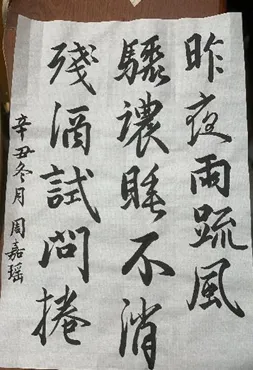 昨夜雨疏風
驟濃睡不消
殘酒試問捲
辛丑冬月 周嘉瑶